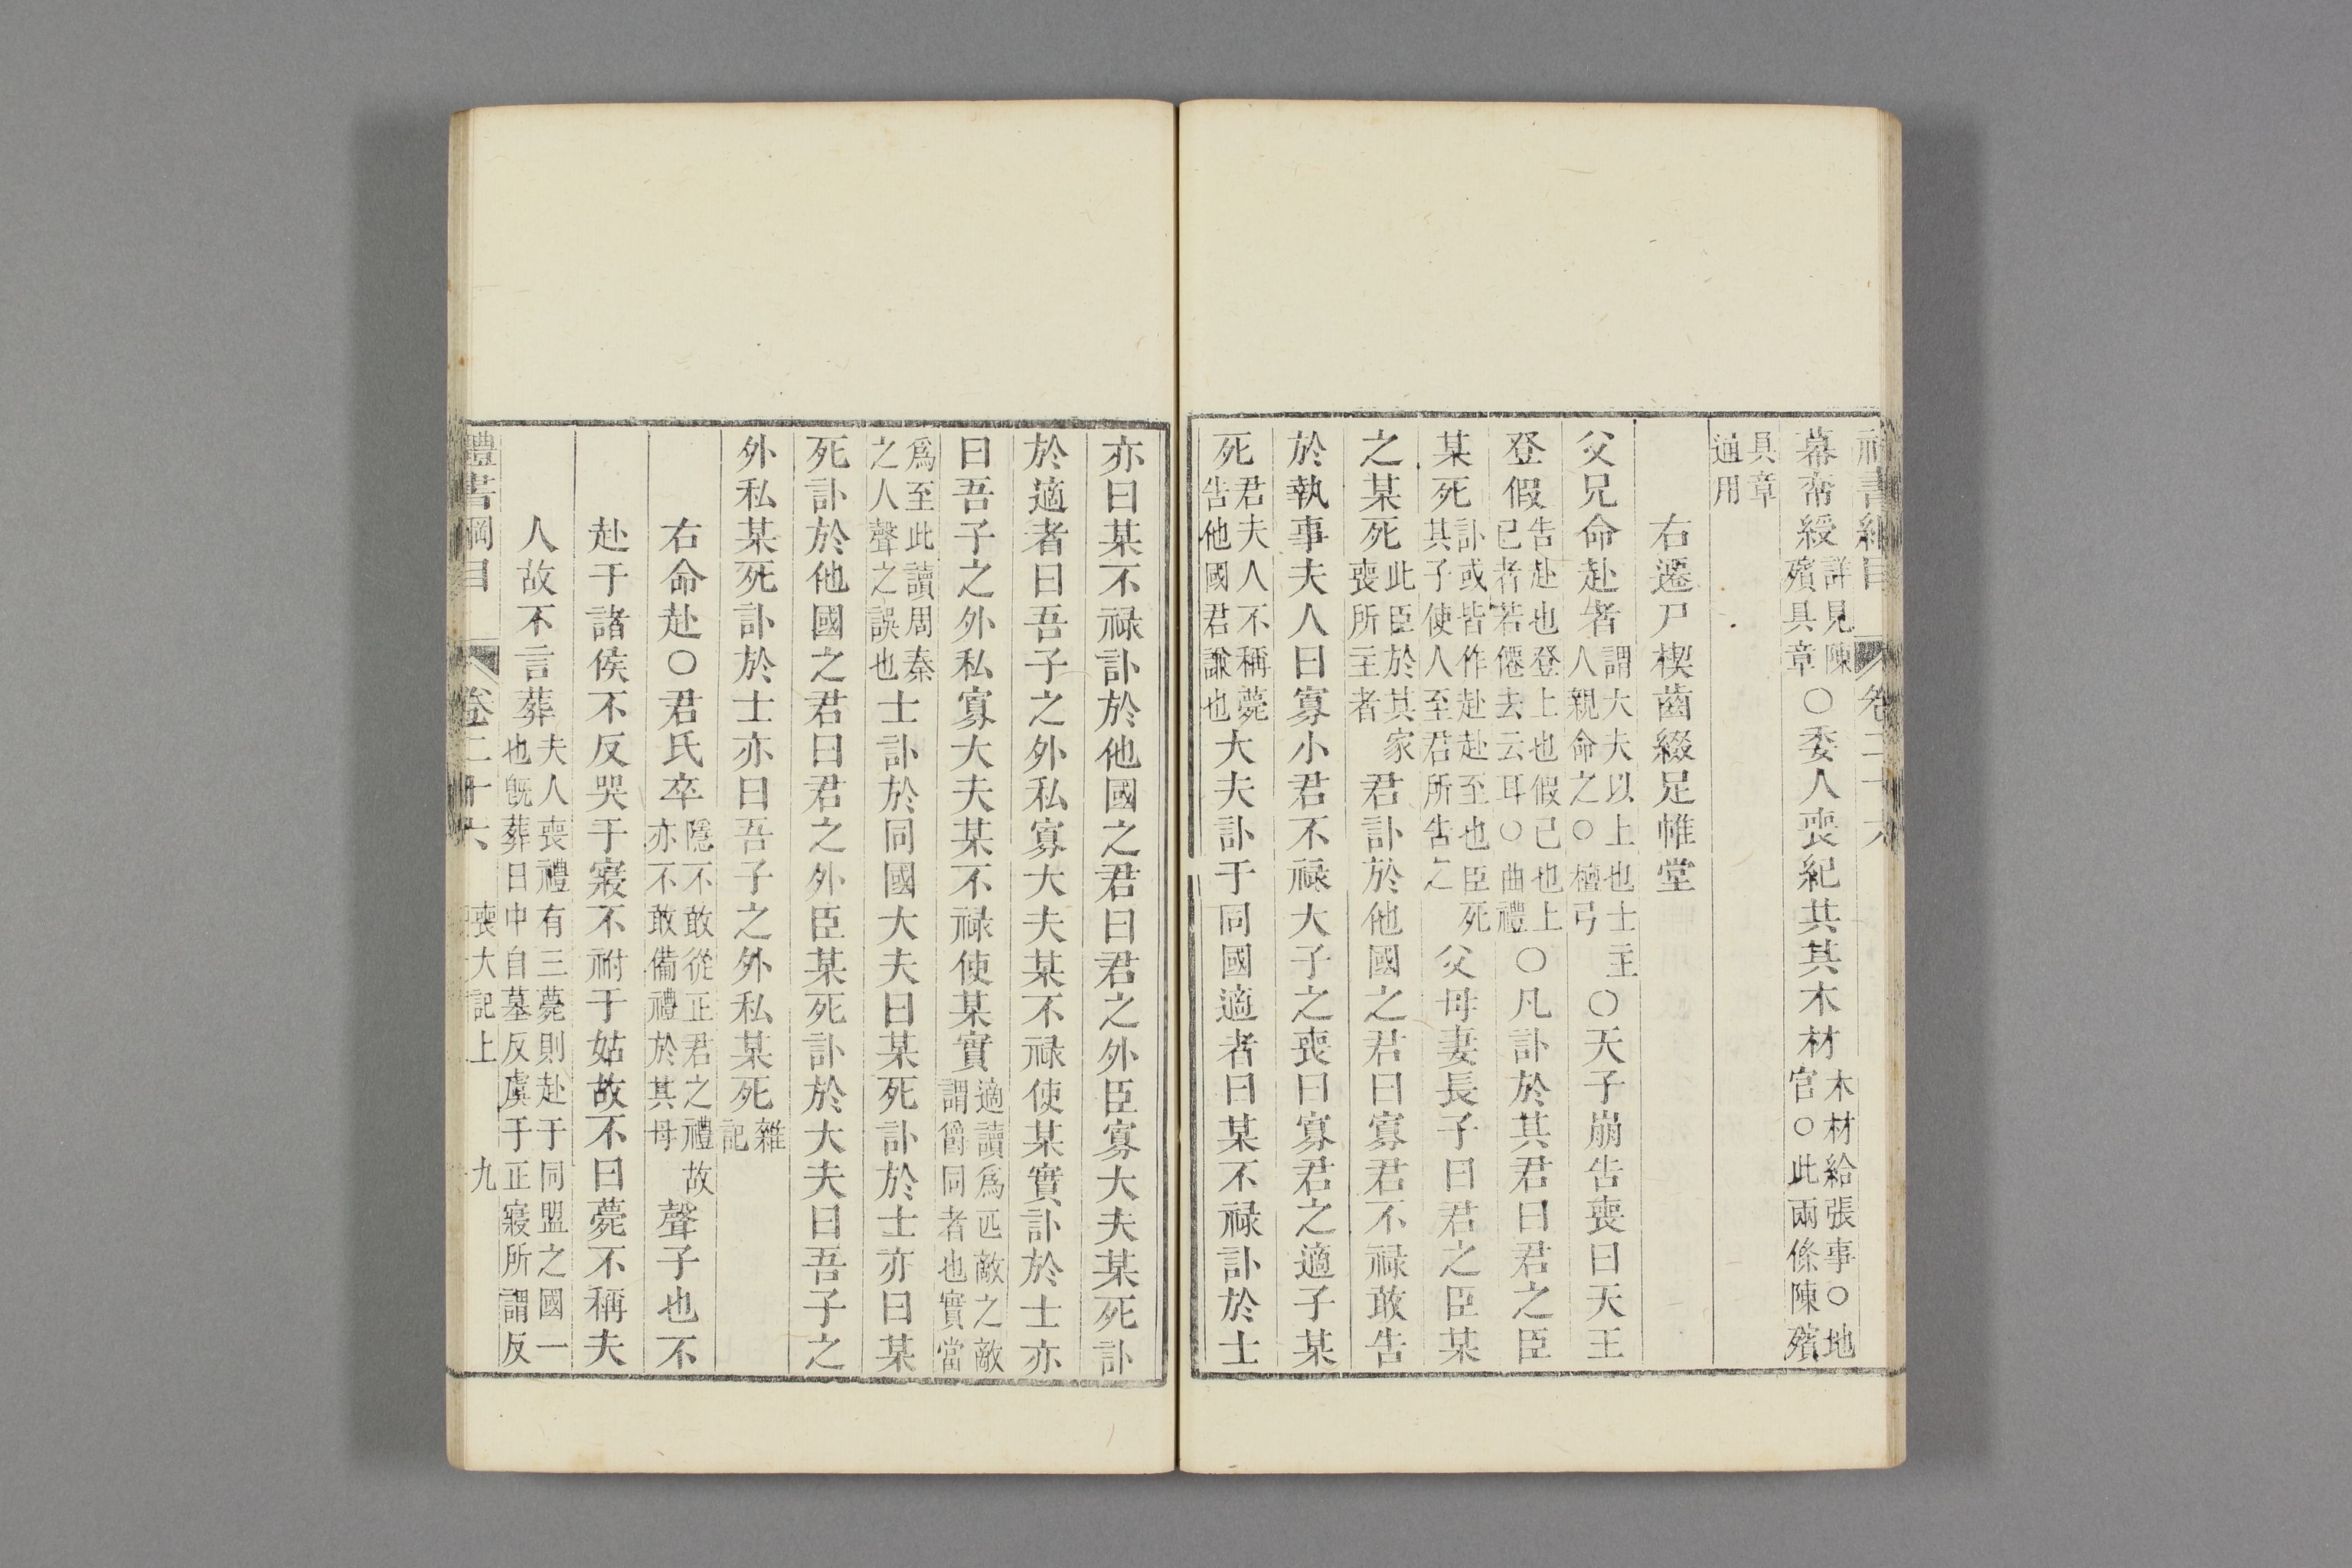 禮書綱目 卷二十六
幕帟綬詳見陳殯具章○委人喪紀共其木材木材給張事○地官○此兩條陳殯
具章通用
右遷尸楔齒綴足帷堂
父兄命赴者謂大夫以上也士主人親命之○檀弓○天子崩告喪曰天王
登假告赴也登上也假已也上已者若僊去云耳○曲禮○凡訃於其君曰君之臣
某死訃或皆作赴赴至也臣死其子使人至君所告之父母妻長子曰君之臣某
之某死此臣於其家喪所主者君訃於他國之君曰寡君不禄敢告
於執事夫人曰寡小君不禄大子之喪曰寡君之適子某
死君夫人不稱薨告他國君謙也大夫訃于同國適者曰某不禄訃於士
亦曰某不禄訃於他國之君曰君之外臣寡大夫某死訃
於適者曰吾子之外私寡大夫某不禄使某實訃於士亦
曰吾子之外私寡大夫某不禄使某實適讀爲匹敵之敵謂爵同者也實當
爲至此讀周秦之人聲之誤也士訃於同國大夫曰某死訃於士亦曰某
死訃於他國之君曰君之外臣某死訃於大夫曰吾子之
外私某死訃於士亦曰吾子之外私某死雜記
右命赴○君氏卒隱不敢從正君之禮故亦不敢備禮於其母聲子也不
赴于諸侯不反哭于寢不祔于姑故不曰薨不稱夫
人故不言葬夫人喪禮有三薨則赴于同盟之國一也旣葬日中自墓反虞于正寢所謂反
禮書綱目 卷二十六 喪大記上 九